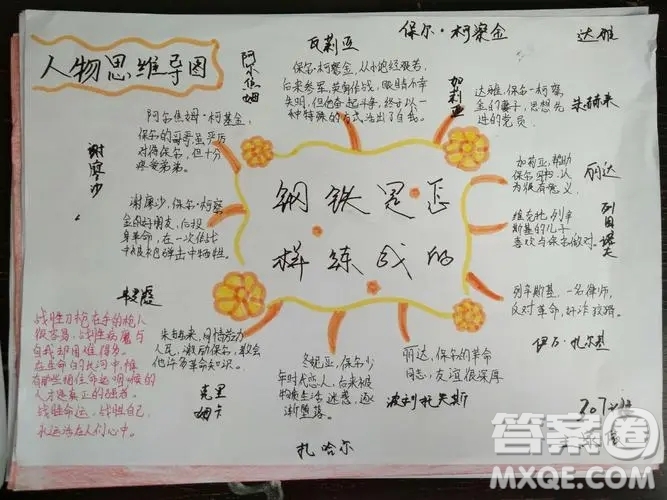 人物思维导图
保尔·柯察金
瓦莉亚
达雅
保尔·柯察金,从小饱经艰苦,
后来参军,英勇作战,眼睛不幸
失明,但他奋起斗争,终于以一
种特殊的方式活出了自我。
加莉亚
达雅,保尔·柯察
金的妻子,思想先
进的党员。
朱赫来
保尔的哥哥,虽严厉
对待保尔,但十分
疼爱弟弟。
谢廖沙
谢廖沙,保尔·柯察
金的好朋友,后投
身革命,在一次作战
中被
弹击中牺牲。
钢铁是
样练成的
加莉亚,帮助
为很有意义。
丽达
维克托,列辛
斯基的儿子
喜欢与保尔做对。
列辛斯基,一名律师,
反对革命,奸诈狡猾。
伊万·扎尔基
战胜刀枪在手的枪人
很容易,战胜病魔与
自我却困难得多。
在生命的长河中,惟
有那些相信命运
人才是真正的强者。
战胜命运,战胜自己,
永远活在人们心中。
朱赫来,同情劳力
人民,激励保尔,教会
他许多革命知识。
克里
姆卡
冬妮亚,保尔少
年时代恋人,后来被
物质生活迷惑,逐
渐堕落。
丽达,保尔的革命
同志,友谊很深厚
波利托夫斯
扎哈尔
207班
答案圈
MXQE.COM